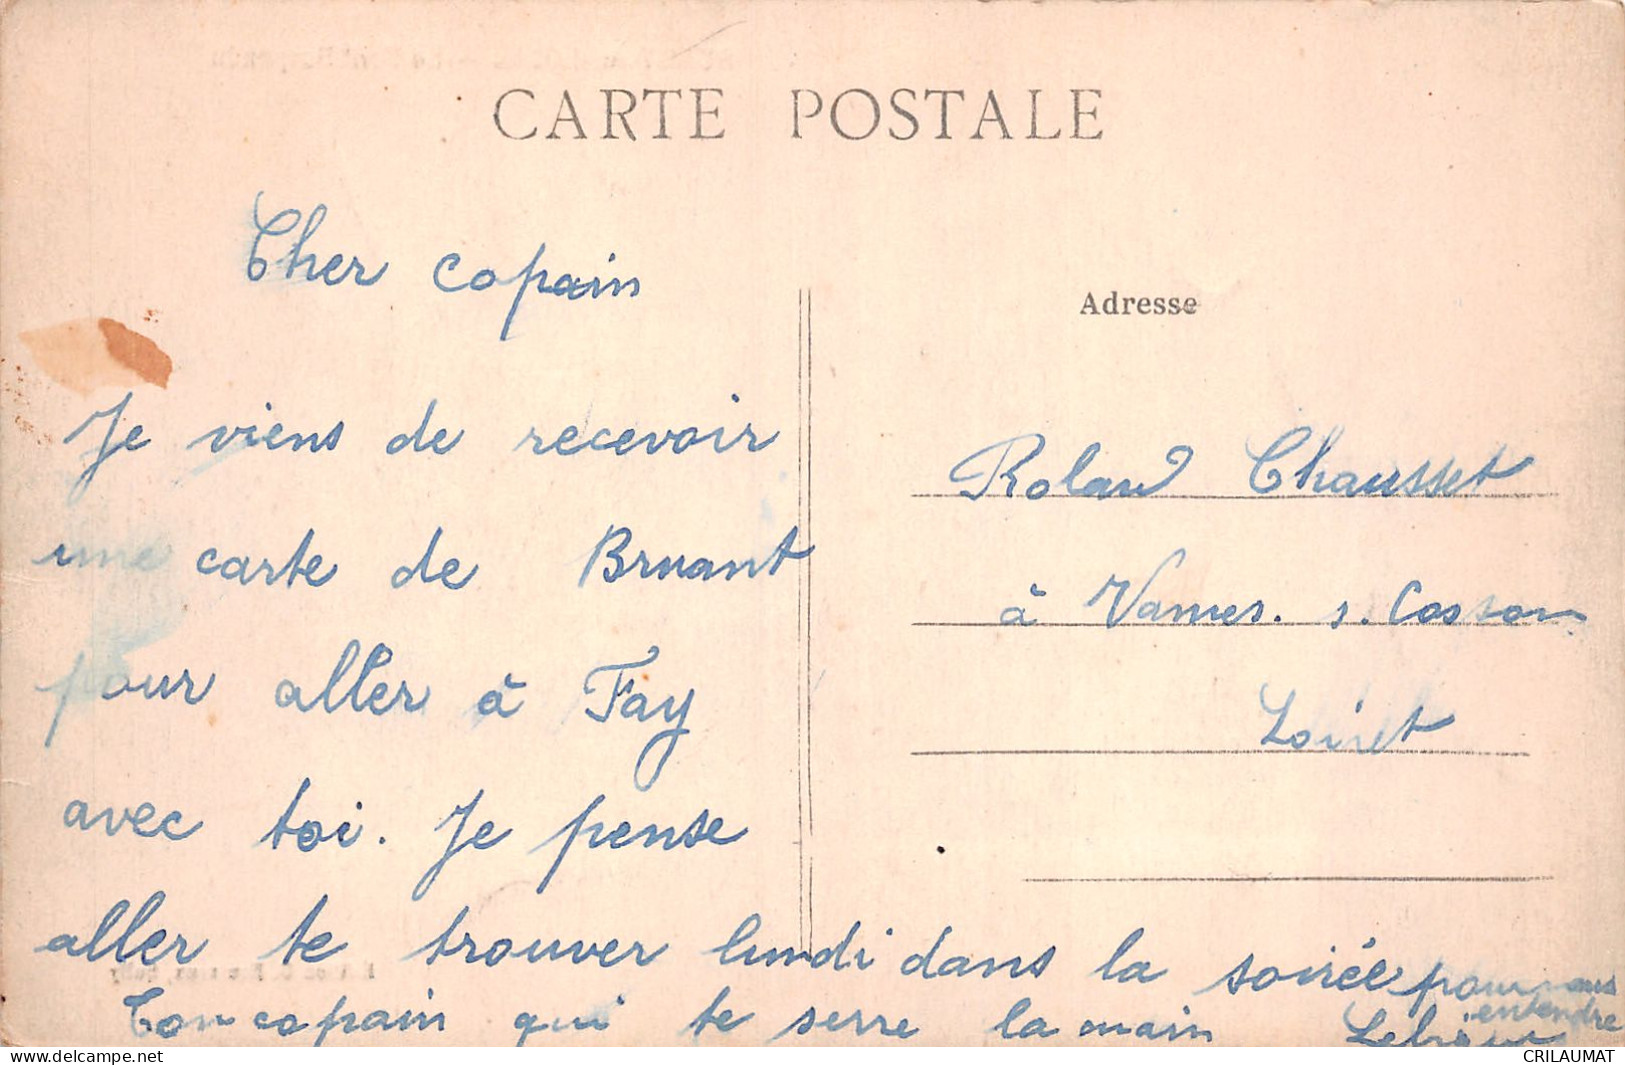 CARTE POSTALE
Cher copain
Je viens de recevoir
une carte de Bruant
pour aller à Fay
avec toi. Je pense
aller te trouver lundi dans la soirée pour nous
entendre
Ton copain qui te serre la main
Adresse
Roland Chausset
à Vannes. s. Cosson
Loiret
www.delcampe.net
CRILAUMAT